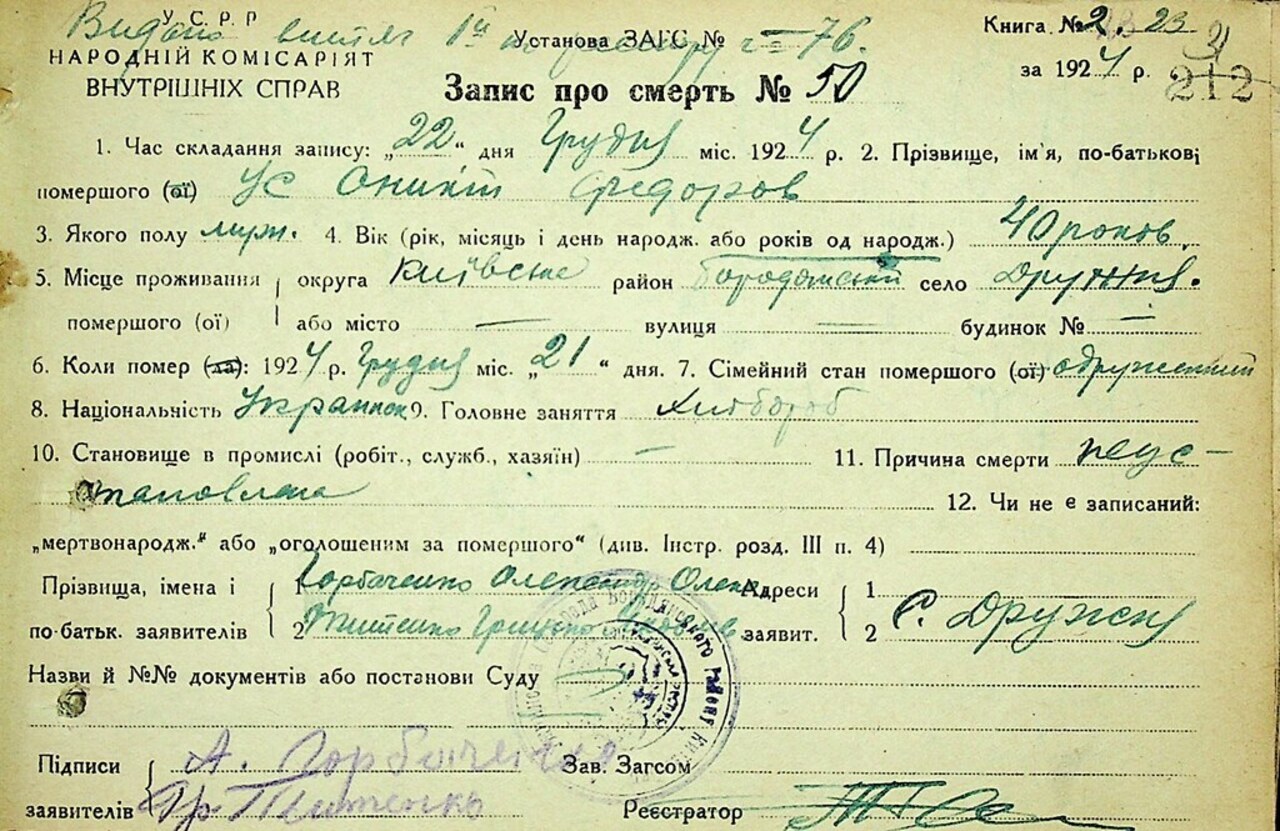 У. С. Р. Р
Видано витяг 1й
НАРОДНІЙ КОМІСАРІЯТ
ВНУТРІШНІХ СПРАВ
Установа ЗАГС № 76.
Книга № 2. 23
за 1924 р. 212
Запис про смерть № 50
1. Час складання запису: „22" дня Грудня міс. 1924 р. 2. Прізвище, ім'я, по-батькові
помершого (ої) Ус Оникій Федоров
3. Якого полу 4. Вік (рік, місяць і день народж. або років од народж.) 40 роков.
5. Місце проживання округа Київське район село Дружня.
помершого (ої) або місто — вулиця — будинок № —
6. Коли помер (ла): 1924 р. Грудня міс. „21" дня. 7. Сімейний стан помершого (ої) одружений
8. Національність Украинец 9. Головне заняття Хлібороб
10. Становище в промислі (робіт., служб., хазяїн) — 11. Причина смерти неус-
тановлена 12. Чи не є записаний:
„мертвонародж." або „оголошеним за помершого" (див. Інстр. розд. III п. 4)
Прізвища, імена і 1 Горбаченко Олександр Адреси 1
по-батьк. заявителів 2 заявит. 2 С. Дружня
Назви й №№ документів або постанови Суду
Підписи А. Горбаченко Зав. Загсом
заявителів Гр. Реєстратор